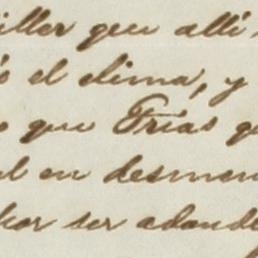 iller que allí
o el clima, y
que Frías q
l en desmen
har ser adonde